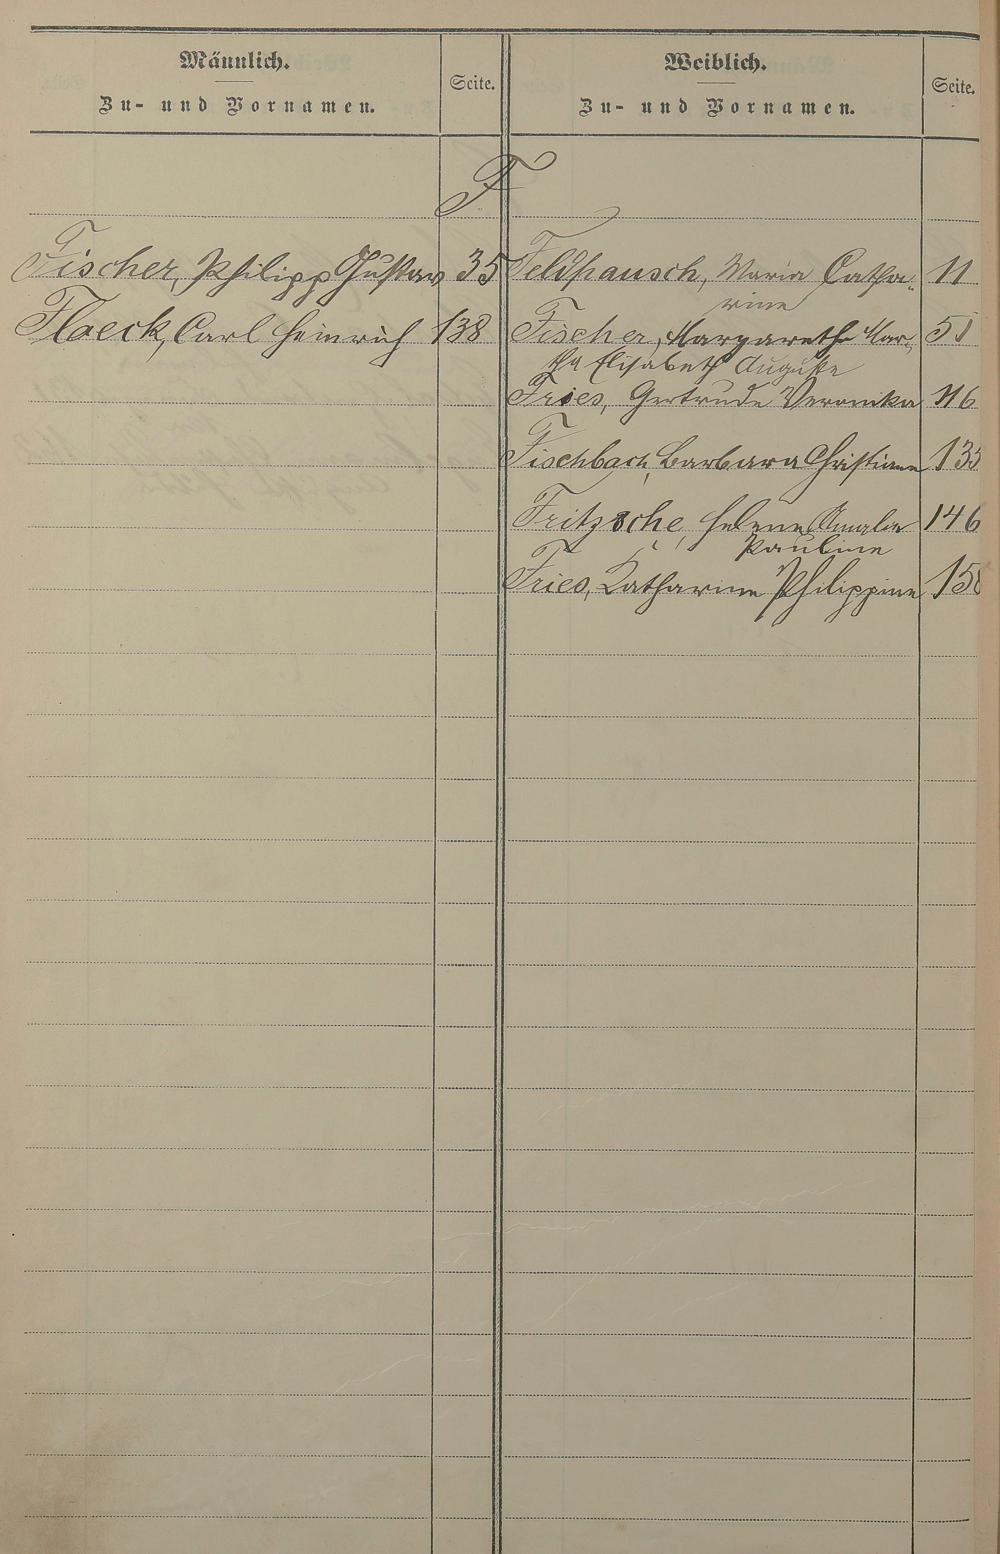 Männlich.
Zu- und Vornamen.
Seite.
Weiblich.
Zu- und Vornamen.
Seite.
F
Fischer, Philipp Gustav 35
Floeck, Carl Heinrich 138
Feldhausch, Maria Catha- 11
rine
Fischer, Margarethe Mar- 51
tha Elisabeth Auguste
Fries, Gertrude Veronika 116
Fischbach, Barbara Christiane 135
Fritzsche, Helene Amalie 146
Pauline
Fries, Katharine Philippine